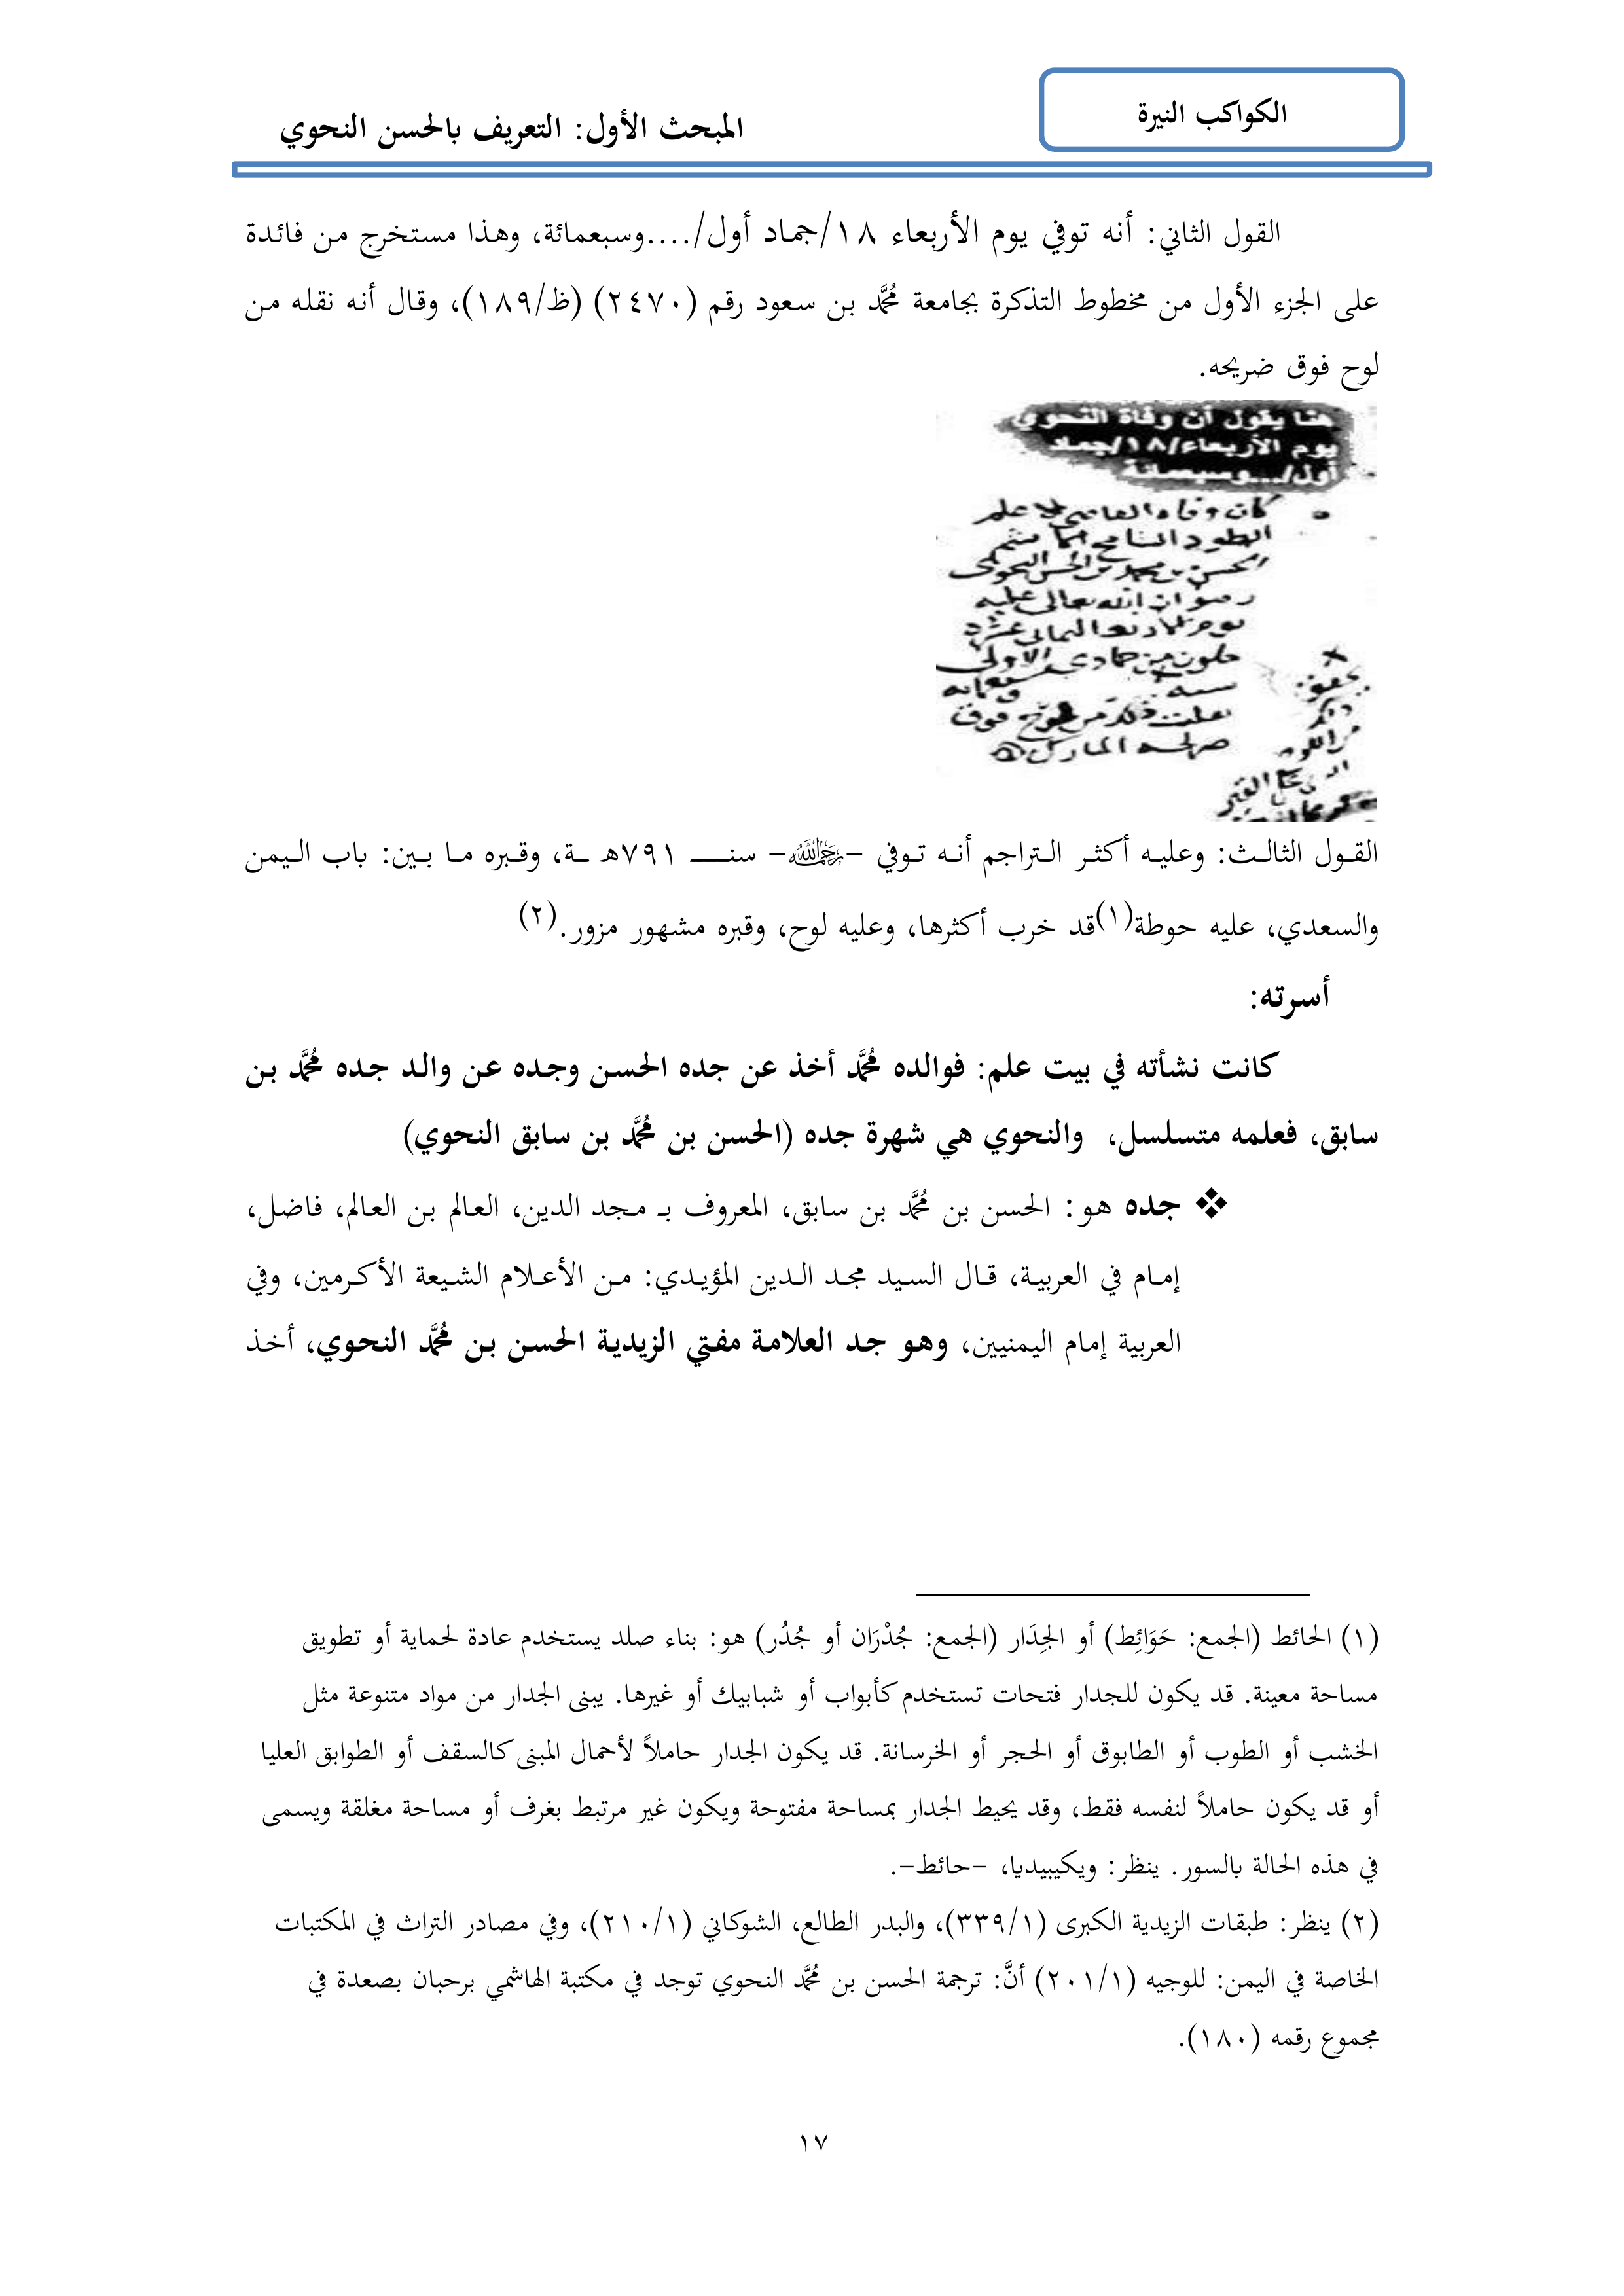 الكواكب النيرة
المبحث الأول: التعريف بالحسن النحوي
القول الثاني: أنه توفي يوم الأربعاء ١٨/جماد أول/....وسبعمائة، وهذا مستخرج من فائدة
على الجزء الأول من مخطوط التذكرة بجامعة مُحَمَّد بن سعود رقم (٢٤٧٠) (ظ/١٨٩)، وقال أنه نقله من
لوح فوق ضريحه.
هنا يقول أن وفاة النحوي
يوم الأربعاء/١٨/جماد
أول/...وسبعمائة
كان وفاه
الحسن بن محمد بن الحسن النحوى
رضوان الله تعالى عليه
خلون من جمادى الاولى
سنه وسبعمائه
نقلت ذلك من لوح فوق
القول الثالث: وعليه أكثر التراجم أنه توفي -ﷲ- سنـــ ٧٩١هـ ـة، وقبره ما بين: باب اليمن
والسعدي، عليه حوطة(١)قد خرب أكثرها، وعليه لوح، وقبره مشهور مزور.(٢)
أسرته:
كانت نشأته في بيت علم: فوالده مُحَمَّد أخذ عن جده الحسن وجده عن والد جده مُحَمَّد بن
سابق، فعلمه متسلسل، والنحوي هي شهرة جده (الحسن بن مُحَمَّد بن سابق النحوي)
❖ جده هو: الحسن بن مُحَمَّد بن سابق، المعروف بـ مجد الدين، العالم بن العالم، فاضل،
إمام في العربية، قال السيد مجد الدين المؤيدي: من الأعلام الشيعة الأكرمين، وفي
العربية إمام اليمنيين، وهو جد العلامة مفتي الزيدية الحسن بن مُحَمَّد النحوي، أخذ
(١) الحائط (الجمع: حَوَائِط) أو الجِدَار (الجمع: جُدْرَان أو جُدُر) هو: بناء صلد يستخدم عادة لحماية أو تطويق
مساحة معينة. قد يكون للجدار فتحات تستخدم كأبواب أو شبابيك أو غيرها. يبنى الجدار من مواد متنوعة مثل
الخشب أو الطوب أو الطابوق أو الحجر أو الخرسانة. قد يكون الجدار حاملاً لأحمال المبنى كالسقف أو الطوابق العليا
أو قد يكون حاملاً لنفسه فقط، وقد يحيط الجدار بمساحة مفتوحة ويكون غير مرتبط بغرف أو مساحة مغلقة ويسمى
في هذه الحالة بالسور. ينظر: ويكيبيديا، -حائط-.
(٢) ينظر: طبقات الزيدية الكبرى (٣٣٩/١)، والبدر الطالع، الشوكاني (٢١٠/١)، وفي مصادر التراث في المكتبات
الخاصة في اليمن: للوجيه (٢٠١/١) أنَّ: ترجمة الحسن بن مُحَمَّد النحوي توجد في مكتبة الهاشمي برحبان بصعدة في
مجموع رقمه (١٨٠).
١٧